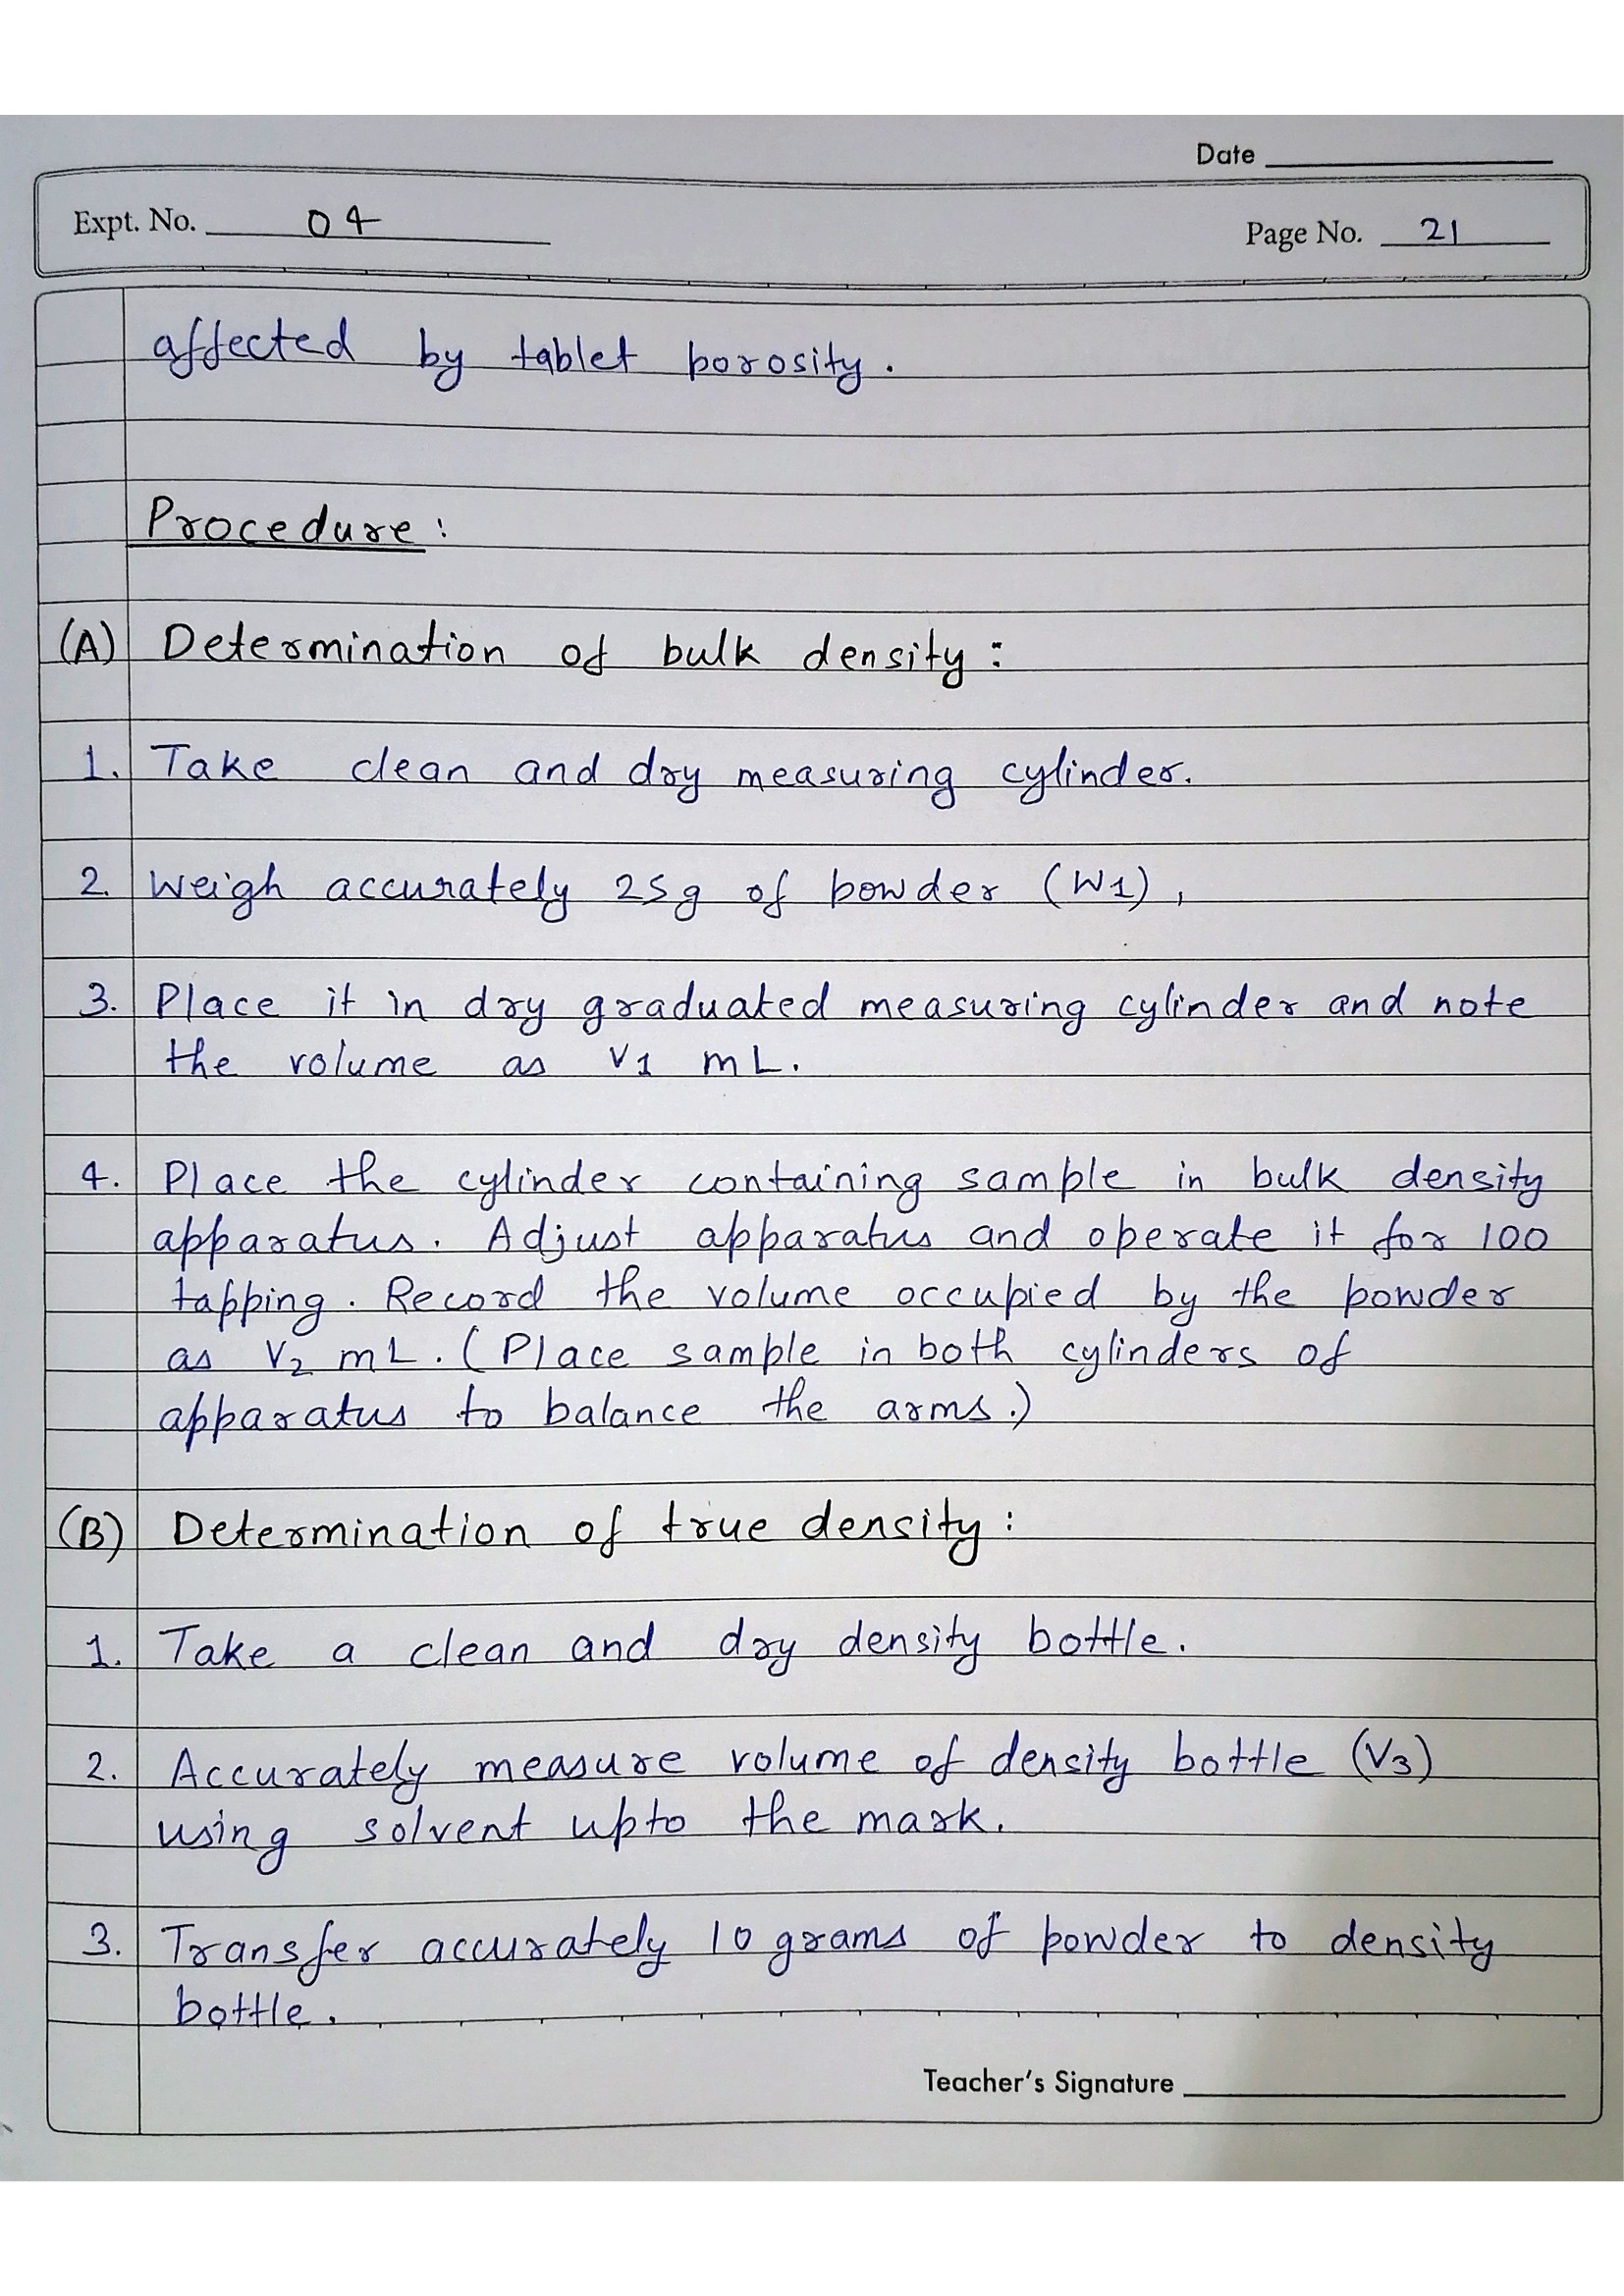 Date
Expt. No. 04
Page No. 21
affected by tablet porosity.
Procedure:
(A) Determination of bulk density:
1. Take clean and dry measuring cylinder.
2. Weigh accurately 25g of powder (W1),
3. Place it in dry graduated measuring cylinder and note
the volume as V1 mL.
4. Place the cylinder containing sample in bulk density
apparatus. Adjust apparatus and operate it for 100
tapping. Record the volume occupied by the powder
as V2 mL. (Place sample in both cylinders of
apparatus to balance the arms.)
(B) Determination of true density:
1. Take a clean and dry density bottle.
2. Accurately measure volume of density bottle (V3)
using solvent upto the mark.
3. Transfer accurately 10 grams of powder to density
bottle.
Teacher's Signature